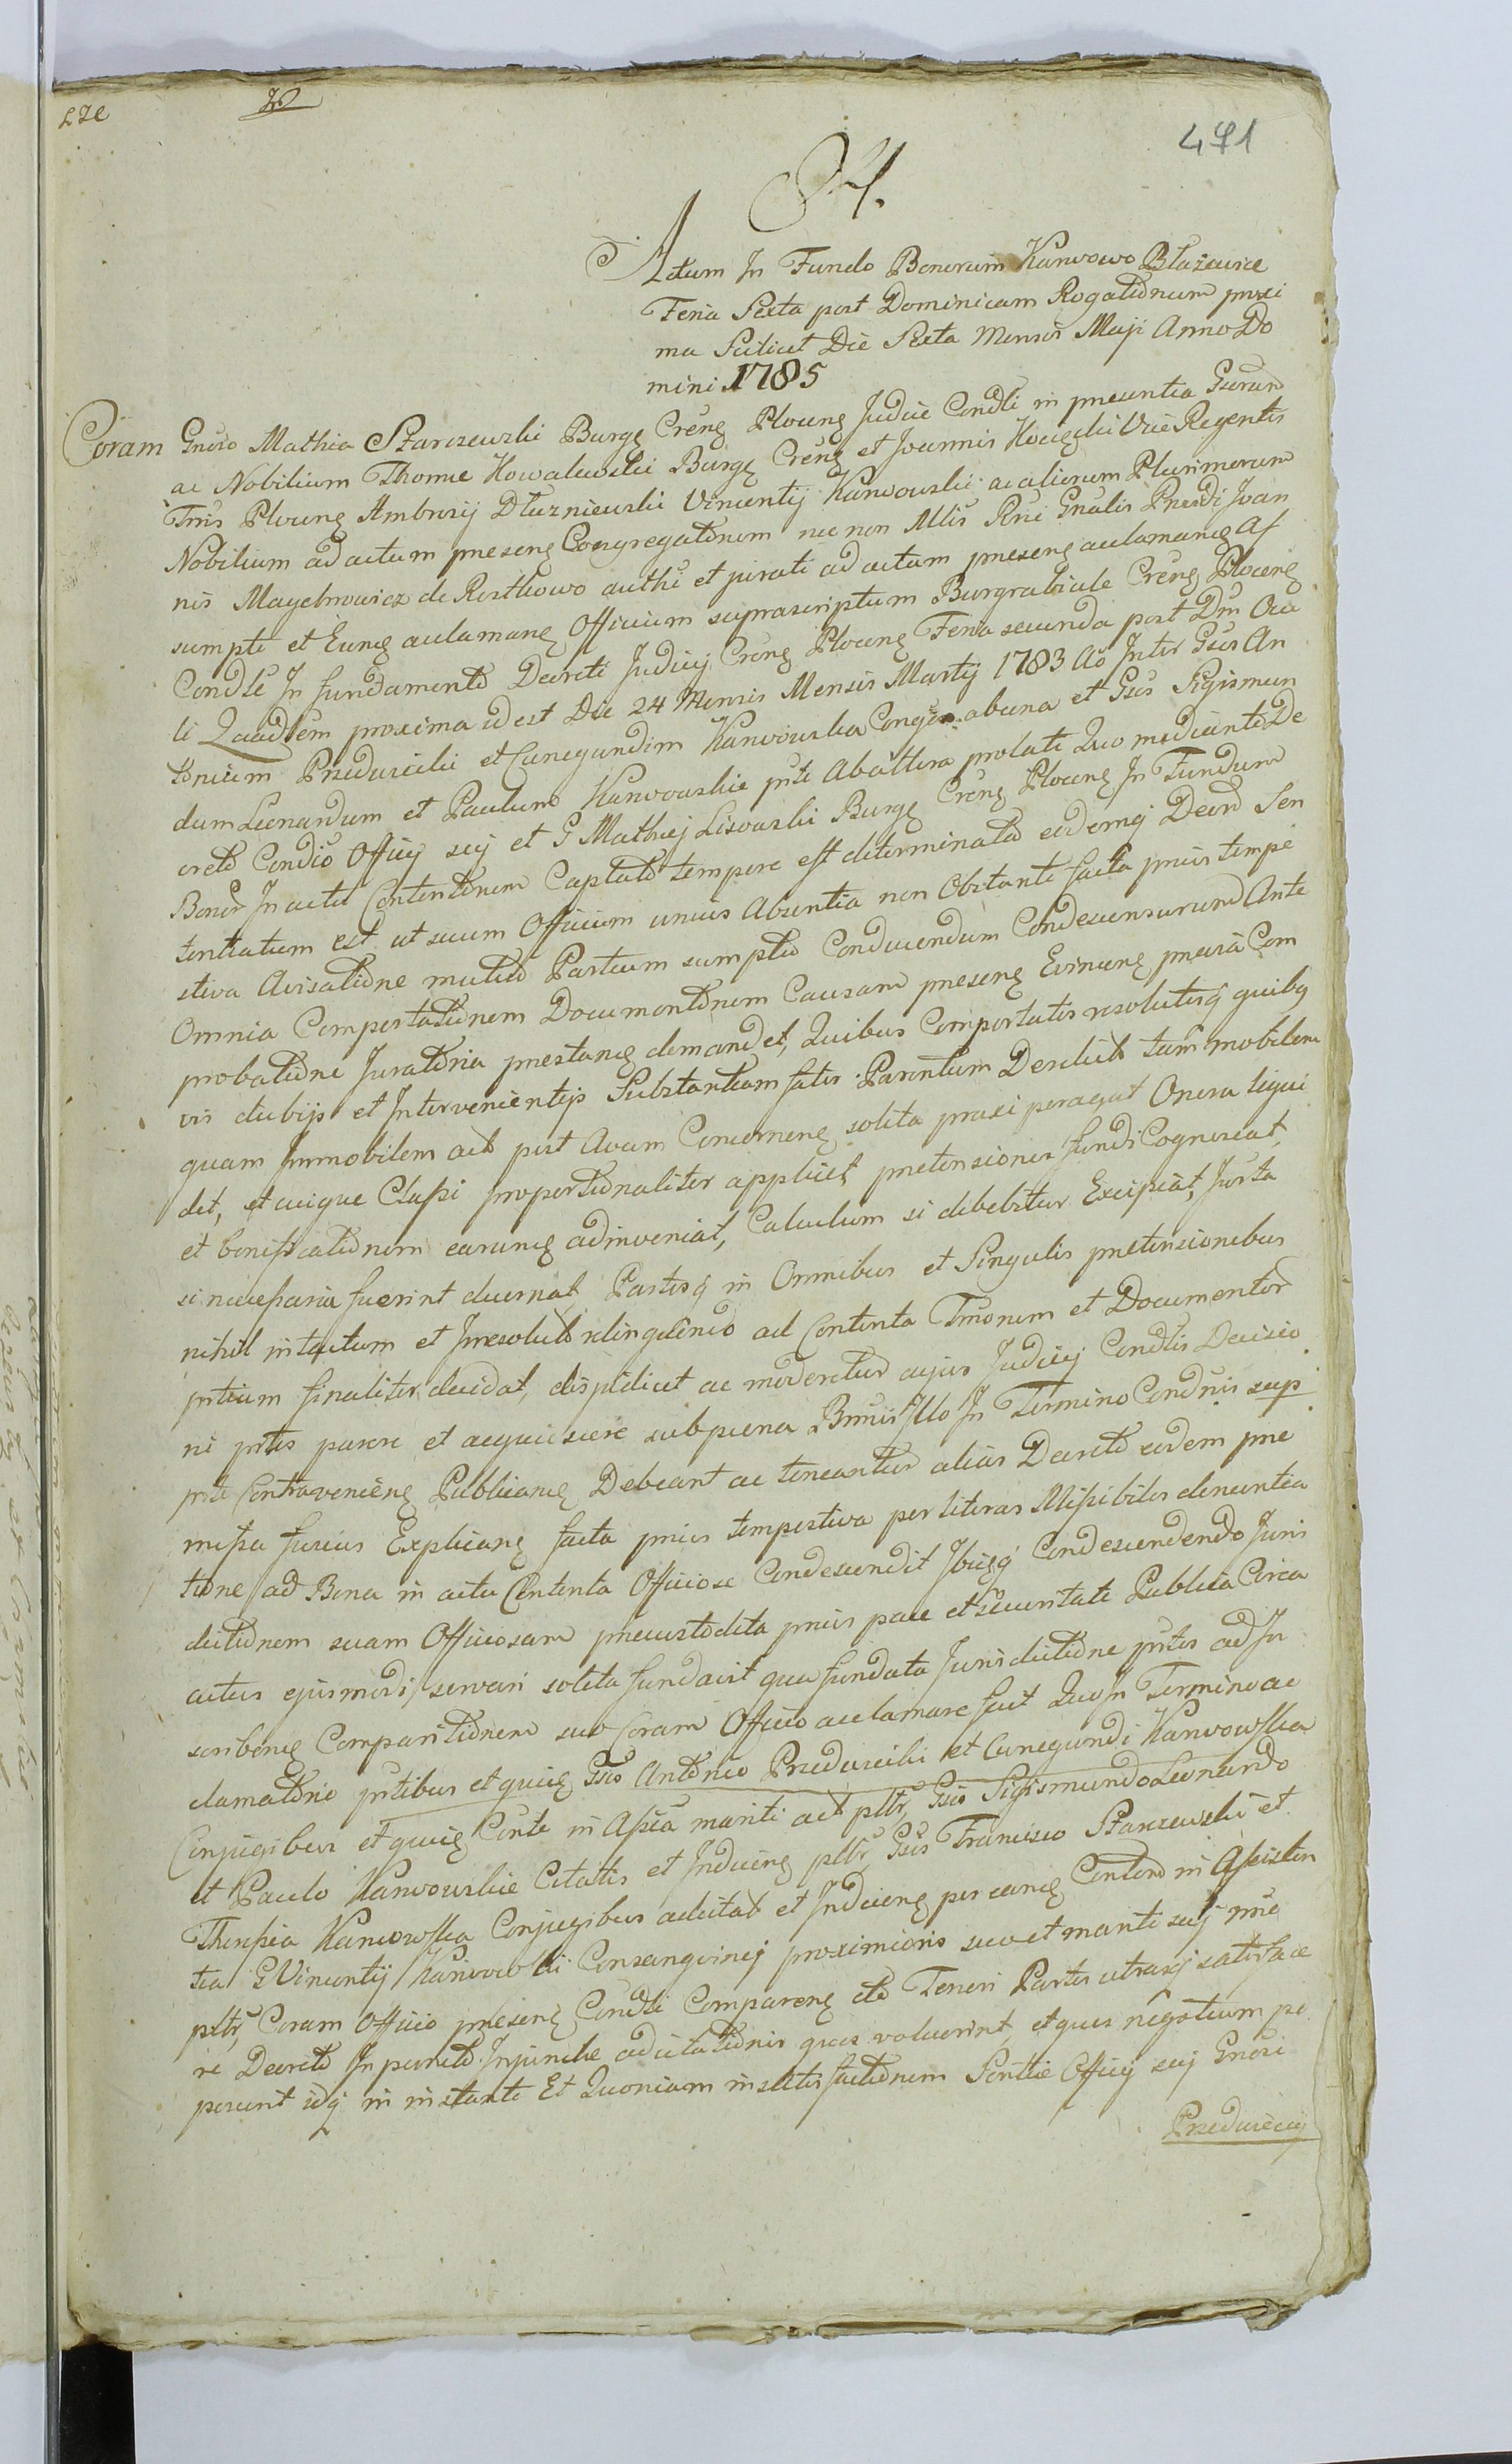 471
Actum In Fundo Bonorum Karwowo Błażewice
Feria Sexta post Dominicam Rogationum proxi
ma Scilicet Die Sexta Mensis Maji Anno Do
mini 1785
Coram Gnoso Mathia Starzewski Burg Creng Ploceng Judice Condli in presentia Gsorum
ac Nobilium Thomæ Kowalewski Burg Creng et Joannis Kocięcki Vice Regentis
Tmis Ploceng Ambrosij Dłuzniewski Vincentij Karwowski ac aliorum Plurimorum
Nobilium ad actum preseng Congregatorum nec non Mlis Rni Gnalis Presdi Joan
nis Maychrowicz de Rostkowo authi et jurati ad actum preseng acclamang As
sumpti et Eung acclamang Officium suprascriptum Burgrabiale Creng Ploceng
Condle In fundamento Decreti Judicij Creng Ploceng Feria secunda post Dm Ocu
li Quadlem proxima id est Die 24 Mensis Mensis Martij 1783 Ao Inter Gsos An
tonium Przedwiecki et Cunegundim Karwowska Conjges abuna et Gsos Sigismun
dum Leonardum et Paulum Karwowskie pte ab altera prolati Quo mediante De
creto Condio Officij sui et G Mathiej Lisowski Burg Creng Ploceng In Fundum
Bonor In actu Contentorum Captato tempore est determinata eodemq Decro Sen
tentiatum est ut suum Officium unius Absentia non Obstante facta prius tempe
stiva Avisatione mutuo Partium sumptu Conducendum Condescensurum Ante
Omnia Comportationem Documentorum Causam preseng Evinceng previa Com
probatione Juratoria prestang demandet, Quibus Comportatis resolutisq quibg
vis dubijs et Intervenientijs Substantiam fatis Parentum Derelict tam mobilem
quam Immobilem act post Avam Concerneng solita praxi peragat Onera liqui
det, et cuique Classi proportionaliter applicet pretensiones fundi Cognoscat,
et bonificationem earung adinveniat, Calculum si debebitur Excipiat, Jurta
si necessaria fuerint decernat Partesq in Omnibus et Singulis pretensionibus
nihil intactum et Irresolut relinquendo ad Contenta Tmonum et Documentor
ptium finaliter decidat, disjudicet ac moderetur cujus Judicij Condlis Decisio
ni ptes parere et acquiescere sub pœna Bnnis Illo In Termino Condnis sup
pte Contravenieng Publicang Debeant ac teneantur alias Decreto eodem pre
missa fusius Explicang facta prius tempestiva per literas Missibiles denuntia
tione ad Bona in actu Contenta Officiose Condescendit Ibiqq Condescendendo Juris
dictionem suam Officiosam precustodita prius pace et securitate Publica Circa
actus ejusmodi servari solita fundavit qua fundata Jurisdictione ptes ad In
scribeng Comparitionem suo Coram Officio acclamare fecit Quo In Termino ac
clamatorio ptibus et quidg Gso Antonio Przedwiecki et Cunegundi Karwowska
Conjugibus et quidg Conte in Assia mariti act pltr, Gso Sigismundo Leonardo
et Paulo Karwowskie Citatis et Indiceng pltr, Gso Francisco Starzewski et
Theresia Karwowska Conjugibus adcitat et Indiceng per eang Contero in Assisten
tia G Vincentij Karwowski Consangvinej proximioris suo et mariti suj nne
pltr, Coram Officio preseng Condli Compareng etc Teneri Partes utrasq satisface
re Decreto In puncto Injunctæ adcitationis quas voluerint, et quas negotium po
poscerit idq in instanti Et Quoniam in satisfactionem Sentiæ Officij suj Gnosi
Przedwieccij